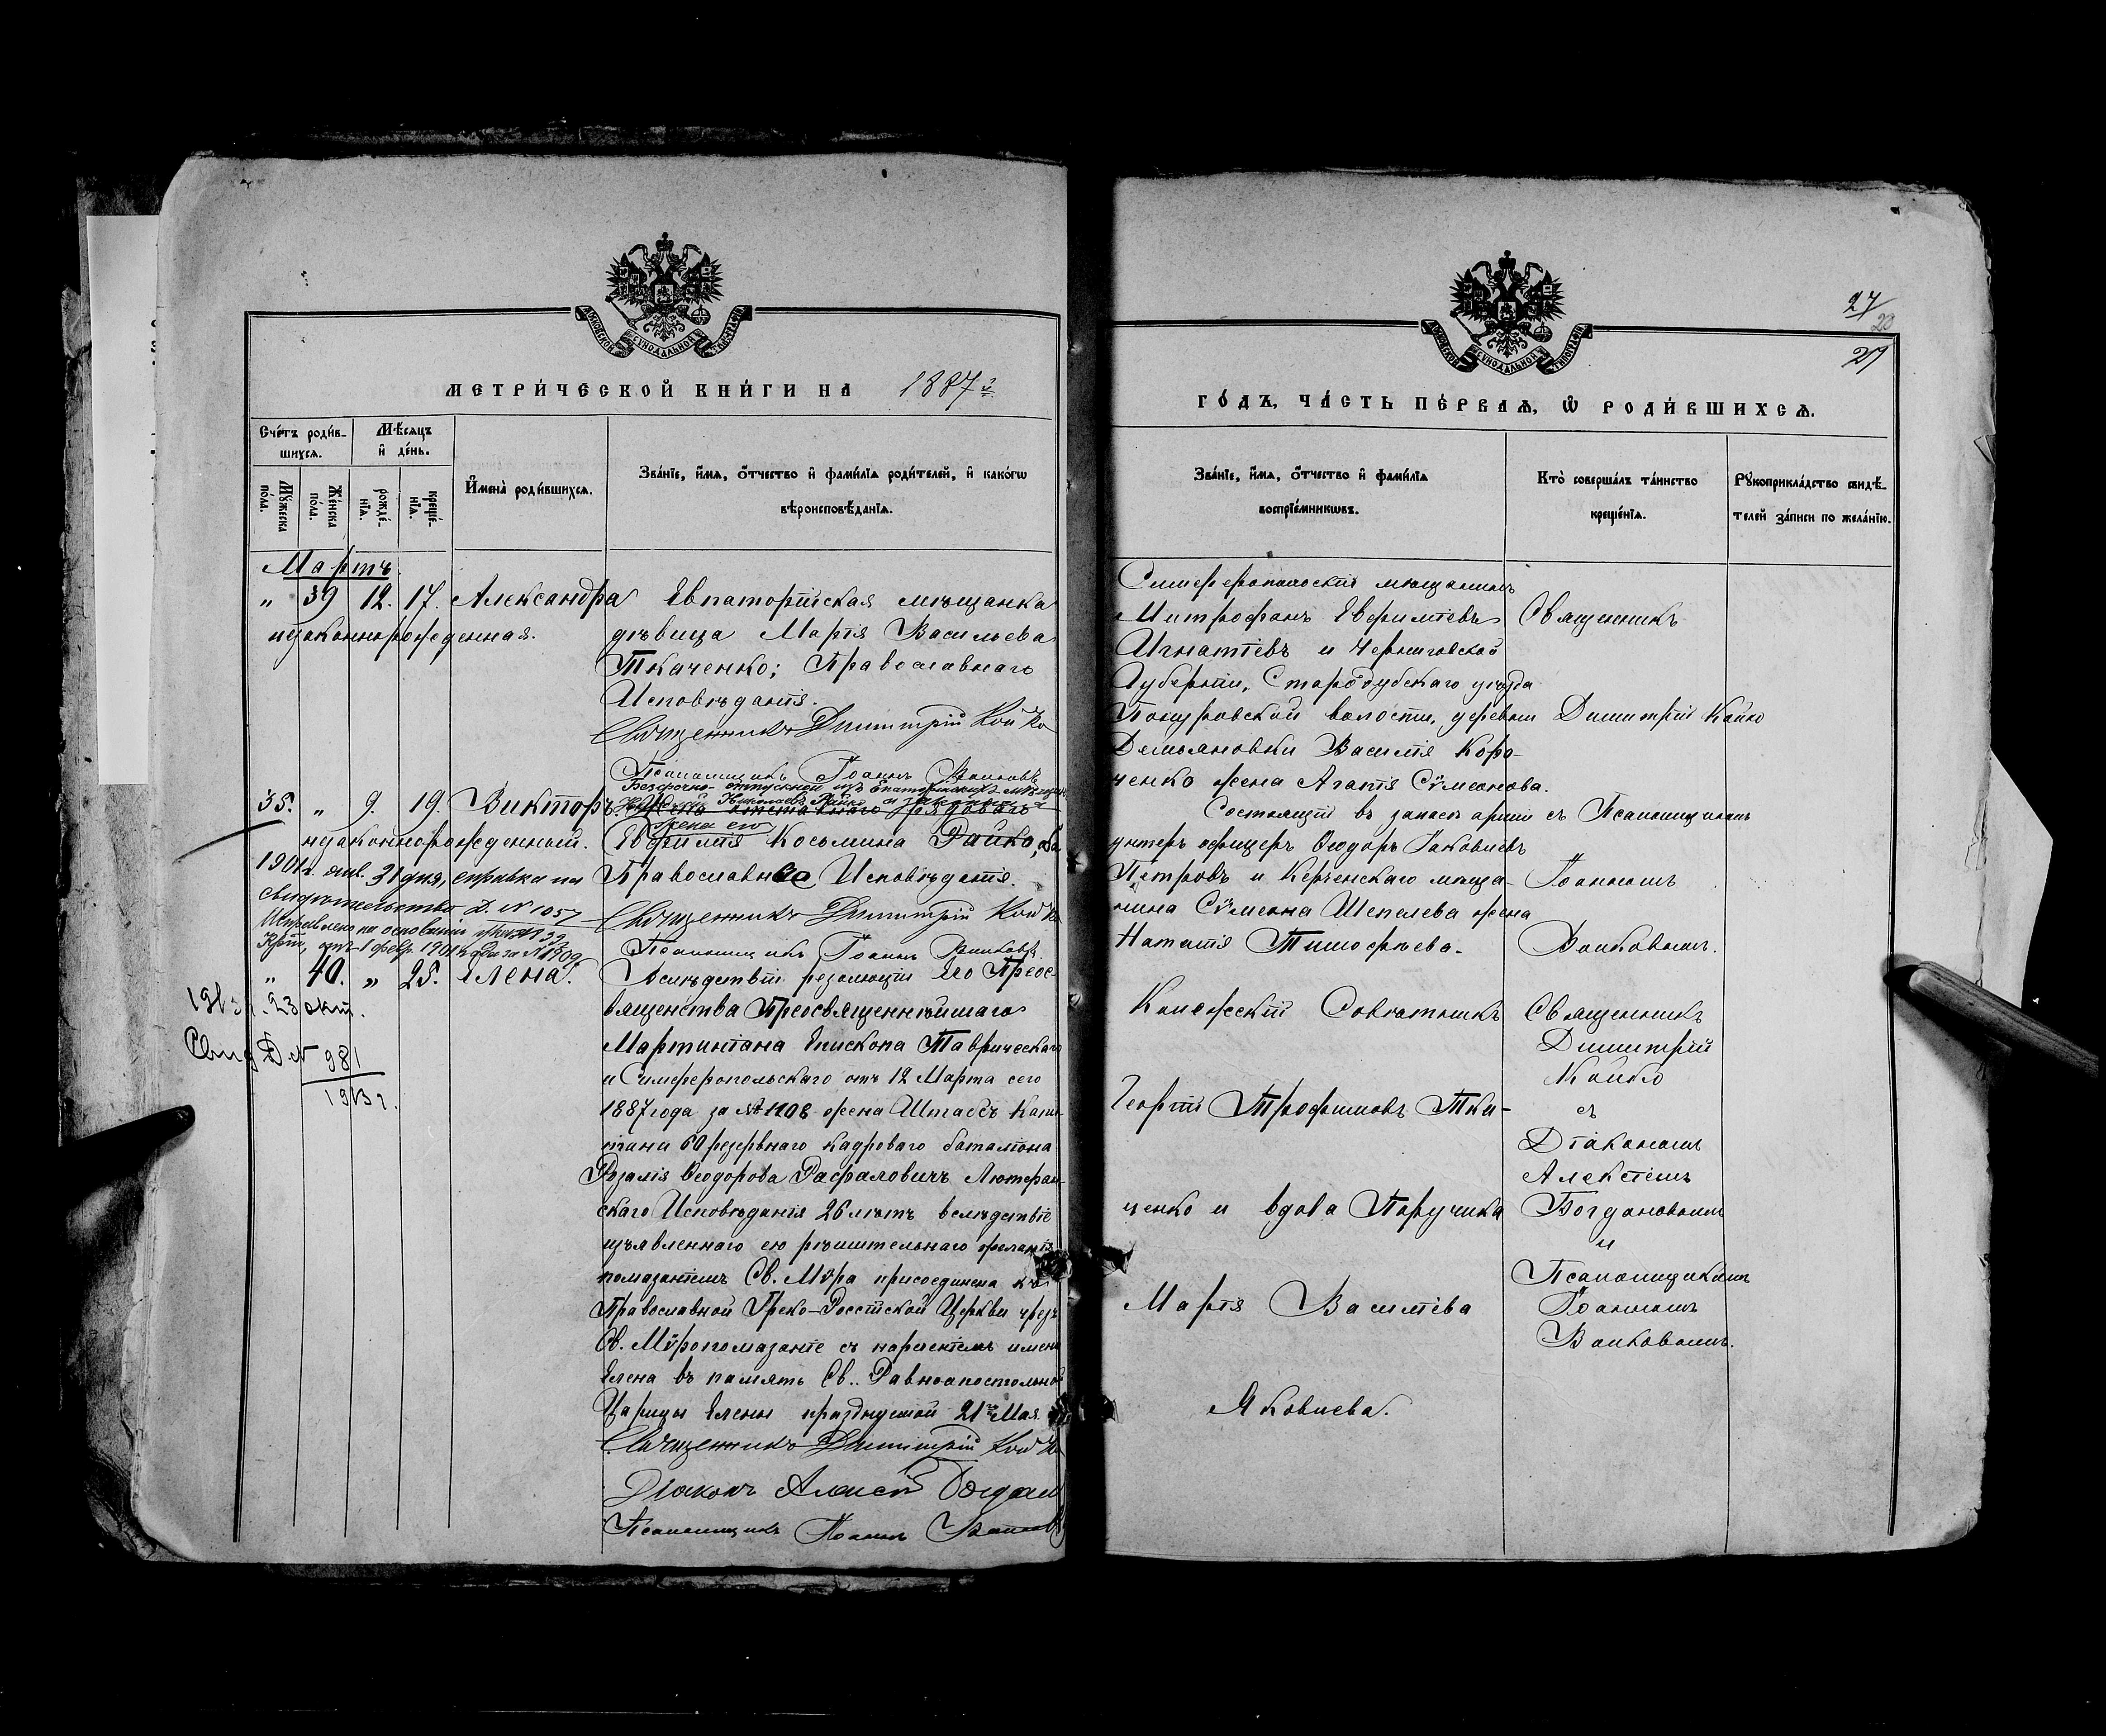 МОСКОВСКОЙ СѴНОДАЛЬНОЙ ТИПОГРАФІИ
МЕТРИ́ЧЕСКОЙ КНИ́ГИ НА 1887 г.
Сче́тъ роди́в-
шихсѧ.
Мѣ́сѧцъ
и҆ де́нь.
Мꙋ́жеска
по́ла.
Же́нска
по́ла.
рожде́-
нїѧ.
креще́-
нїѧ.
И҆мена̀ роди́вшихсѧ.
Зва́нїе, и҆́мѧ, ѻ҆́тчество и҆ фами́лїѧ роди́телей, и҆ како́гѡ
вѣроисповѣ́данїѧ.
Мартъ.
„ 39 12. 17. Александра
незаконнорожденная.
Евпаторійская мѣщанка
дѣвица Марія Васильева
Ткаченко; Православнаго
Исповѣданія.
Священникъ Димитрій Койко
Псаломщикъ Іоаннъ Волковъ
35. „ 9. 19. Викторъ.
незаконнорожденный.
Безсрочно-отпускной изъ
Николаевъ Райко и законная
жена его
Евфимія Косьмина Райко, оба
Православнаго Исповѣданія.
1901 г. янв. 31 дня, справка на
свидѣтельство Д. № 1057
Исправлено на основаніи
от 1 февр. 1901 года за № 1909.
Священникъ Димитрій Койко
Псаломщикъ Іоаннъ Волковъ.
„ 40. „ 25. Елена.
1913 г. 23 окт.
Свид Д №
981
1913 г.
Вслѣдствіе резолюціи Его Преос-
вященства Преосвященнѣйшаго
Мартиніана Епископа Таврическаго
и Симферопольскаго отъ 12 Марта сего
1887 года за № 1108 жена Штабсъ Капи-
тана 60 резервнаго кадроваго баталіона
Розалія Ѳеодорова Рафаловичъ Лютеран-
скаго Исповѣданія 26 лѣтъ вслѣдствіе
изъявленнаго ею рѣшительнаго желанія
помазаніемъ Св. Мѵра присоединена къ
Православной Греко-Россійской Церкви чрезъ
Св. Мѵропомазаніе съ нареченіемъ имени
Елена въ память Св. Равноапостольной
Царицы Елены празднуемой 21го Мая.
Священникъ Димитрій Койко
Діаконъ Алексѣй Богдан
Псаломщикъ Іоаннъ Волковъ
27
20
27
МОСКОВСКОЙ СѴНОДАЛЬНОЙ ТИПОГРАФІИ
ГО́ДЪ, ЧА́СТЬ ПЕ́РВАѦ, Ѡ҆ РОДИ́ВШИХСѦ.
Зва́нїе, и҆́мѧ, ѻ҆́тчество и҆ фами́лїѧ
воспрїе́мникѡвъ.
Кто̀ соверша́лъ та́инство
креще́нїѧ.
Рꙋкоприкла́дство свидѣ́-
телей за́писи по жела́нїю.
Симферопольскій мѣщанинъ
Митрофанъ Евфиміевъ
Игнатіевъ и Черниговской
Губерніи, Стародубскаго уѣзда
Понуровской волости, деревни
Демьяновки Василія Коро-
ченко жена Агапія Сѵмеонова.
Священникъ
Димитрій Койко
съ Псаломщикомъ
Іоанномъ
Волковымъ.
Состоящій въ запасѣ арміи
унтеръ офицеръ Ѳеодоръ Іаковлевъ
Петровъ и Керченскаго мѣща-
нина Сѵмеона Шепелева жена
Наталія Тимофѣева.
Колежскій Совѣтникъ
Георгій Трофимовъ Тка-
ченко и вдова Поручика
Марія Василіева
Яковлева.
Священникъ
Димитрій
Койко
съ
Діакономъ
Алексѣемъ
Богдановымъ
и
Псаломщикомъ
Іоанномъ
Волковымъ.